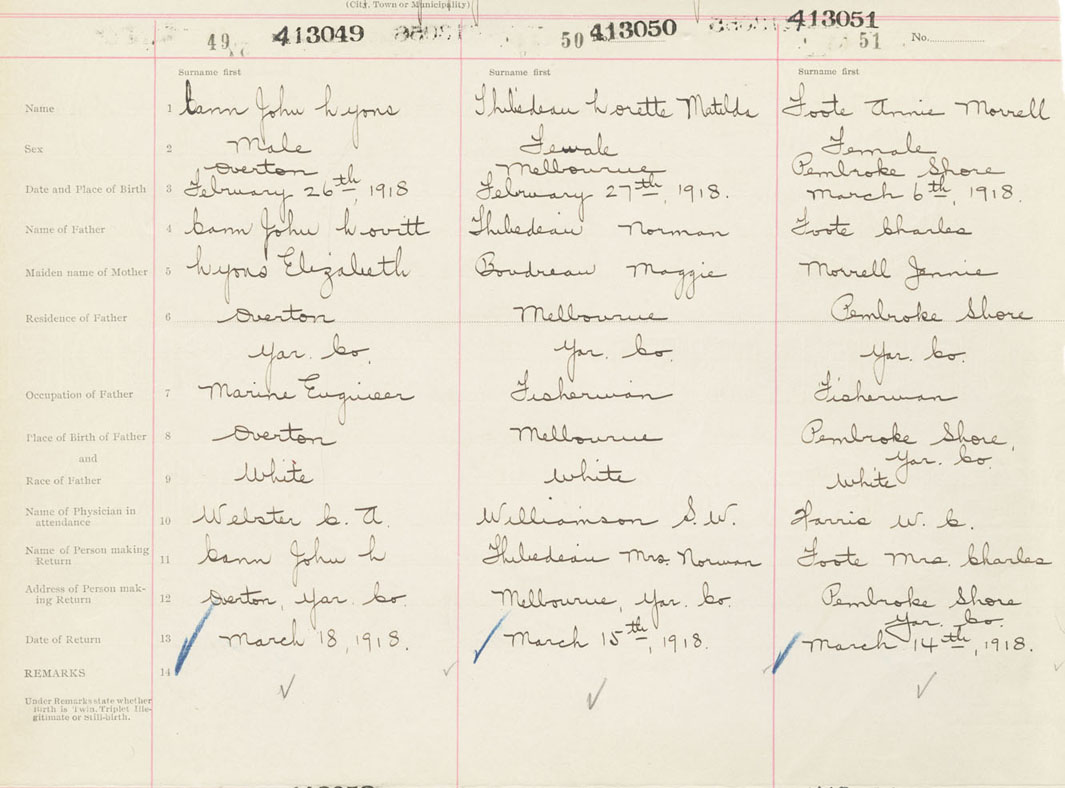 (City, Town or Municipality)
49 413049 50 413050 413051 51 No.
Surname first Surname first Surname first
Name 1 Cann John Lyons Thibedeau Lorette Matilda Foote Annie Morrell
Sex 2 Male Female Female
Overton Melbourne Pembroke Shore
Date and Place of Birth 3 February 26th, 1918 February 27th, 1918. March 6th, 1918.
Name of Father 4 Cann John Lovitt Thibedeau Norman Foote Charles
Maiden name of Mother 5 Lyons Elizabeth Boudreau Maggie Morrell Jennie
Residence of Father 6 Overton Melbourne Pembroke Shore
Yar. Co. Yar. Co. Yar. Co.
Occupation of Father 7 Marine Engineer Fisherman Fisherman
Place of Birth of Father 8 Overton Melbourne Pembroke Shore,
and Yar. Co.
Race of Father 9 White White White
Name of Physician in
attendance 10 Webster C. A. Williamson S. W. Harris W. C.
Name of Person making
Return 11 Cann John L Thibedeau Mrs. Norman Foote Mrs. Charles
Address of Person mak-
ing Return 12 Overton, Yar. Co. Melbourne, Yar. Co. Pembroke Shore
Yar. Co.
Date of Return 13 March 18, 1918. March 15th, 1918. March 14th, 1918.
REMARKS 14
Under Remarks state whether
Birth is Twin, Triplet Ille-
gitimate or Still-birth.